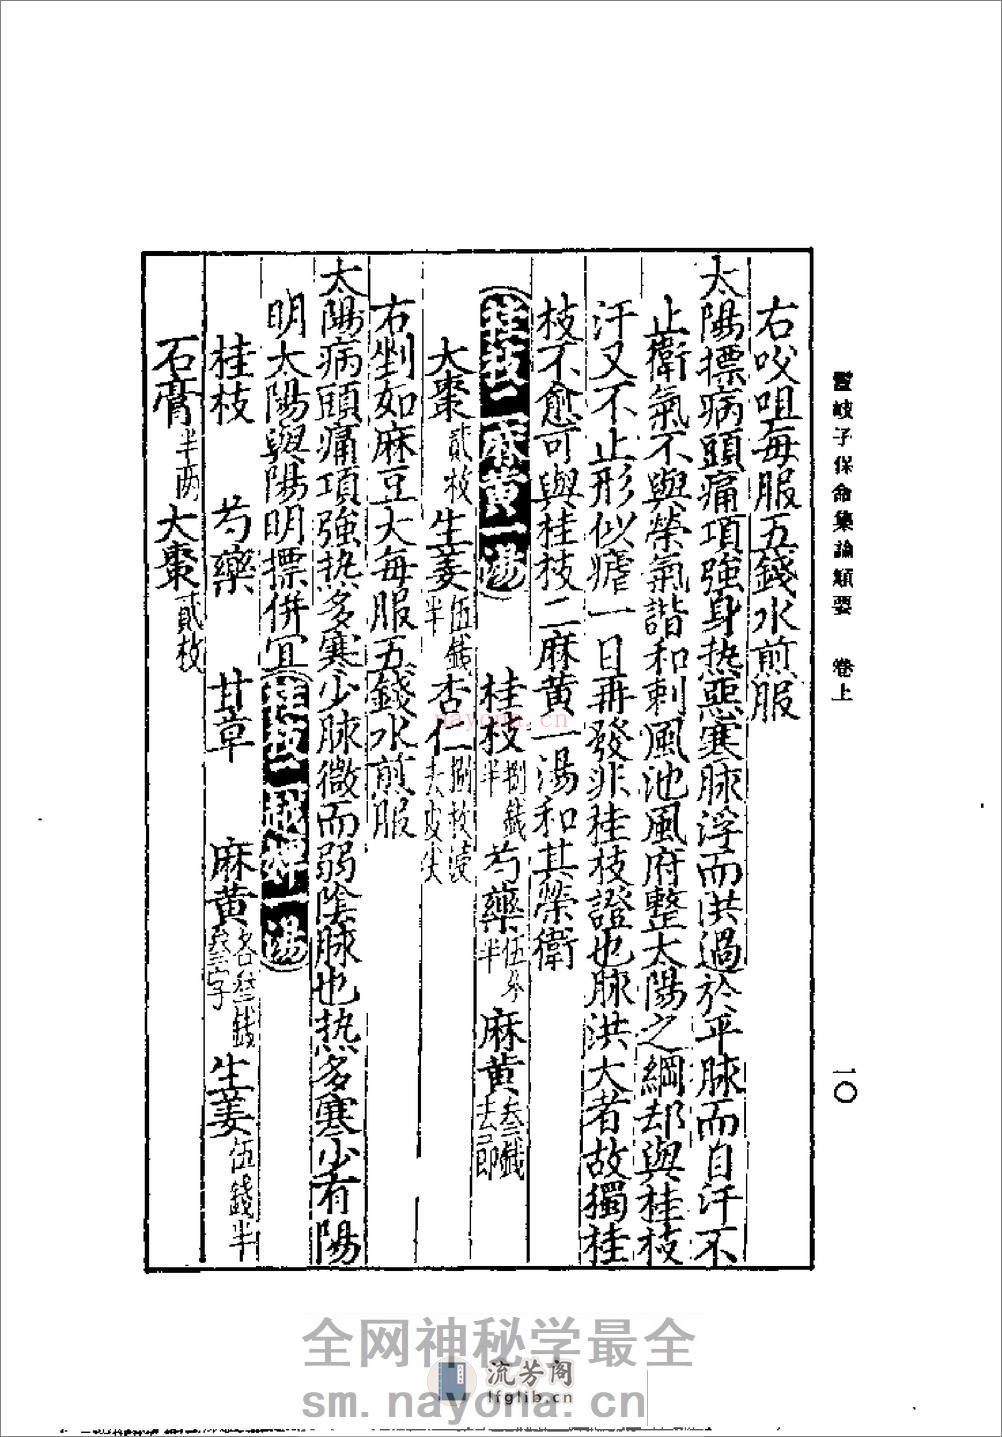 雲岐子保命集論類要 卷上
一〇
右㕮咀每服五錢水煎服
太陽摽病頭痛項強身热惡寒脉浮而洪過於平脉而自汗不
止衛氣不與榮氣諧和刺風池風府整太陽之綱却與桂枝
汗又不止形似瘧一日再發非桂枝證也脉洪大者故獨桂
枝不愈可與桂枝二麻黄一湯和其榮衛
桂枝二麻黄一湯 桂枝捌錢半 芍藥伍分半 麻黄叁錢去節
大棗貳枚 生姜伍錢半 杏仁捌枚浸去皮尖
右剉如麻豆大每服五錢水煎服
太陽病頭痛項強热多寒少脉微而弱陰脉也热多寒少有陽
明太陽與陽明摽併宜桂枝二越婢一湯
桂枝 芍藥 甘草 麻黄各叁錢叁字 生姜伍錢半
石膏半两 大棗貳枚
nayona.cn
全网神秘学最全
流芳阁
lfglib.cn
sm.nayona.cn